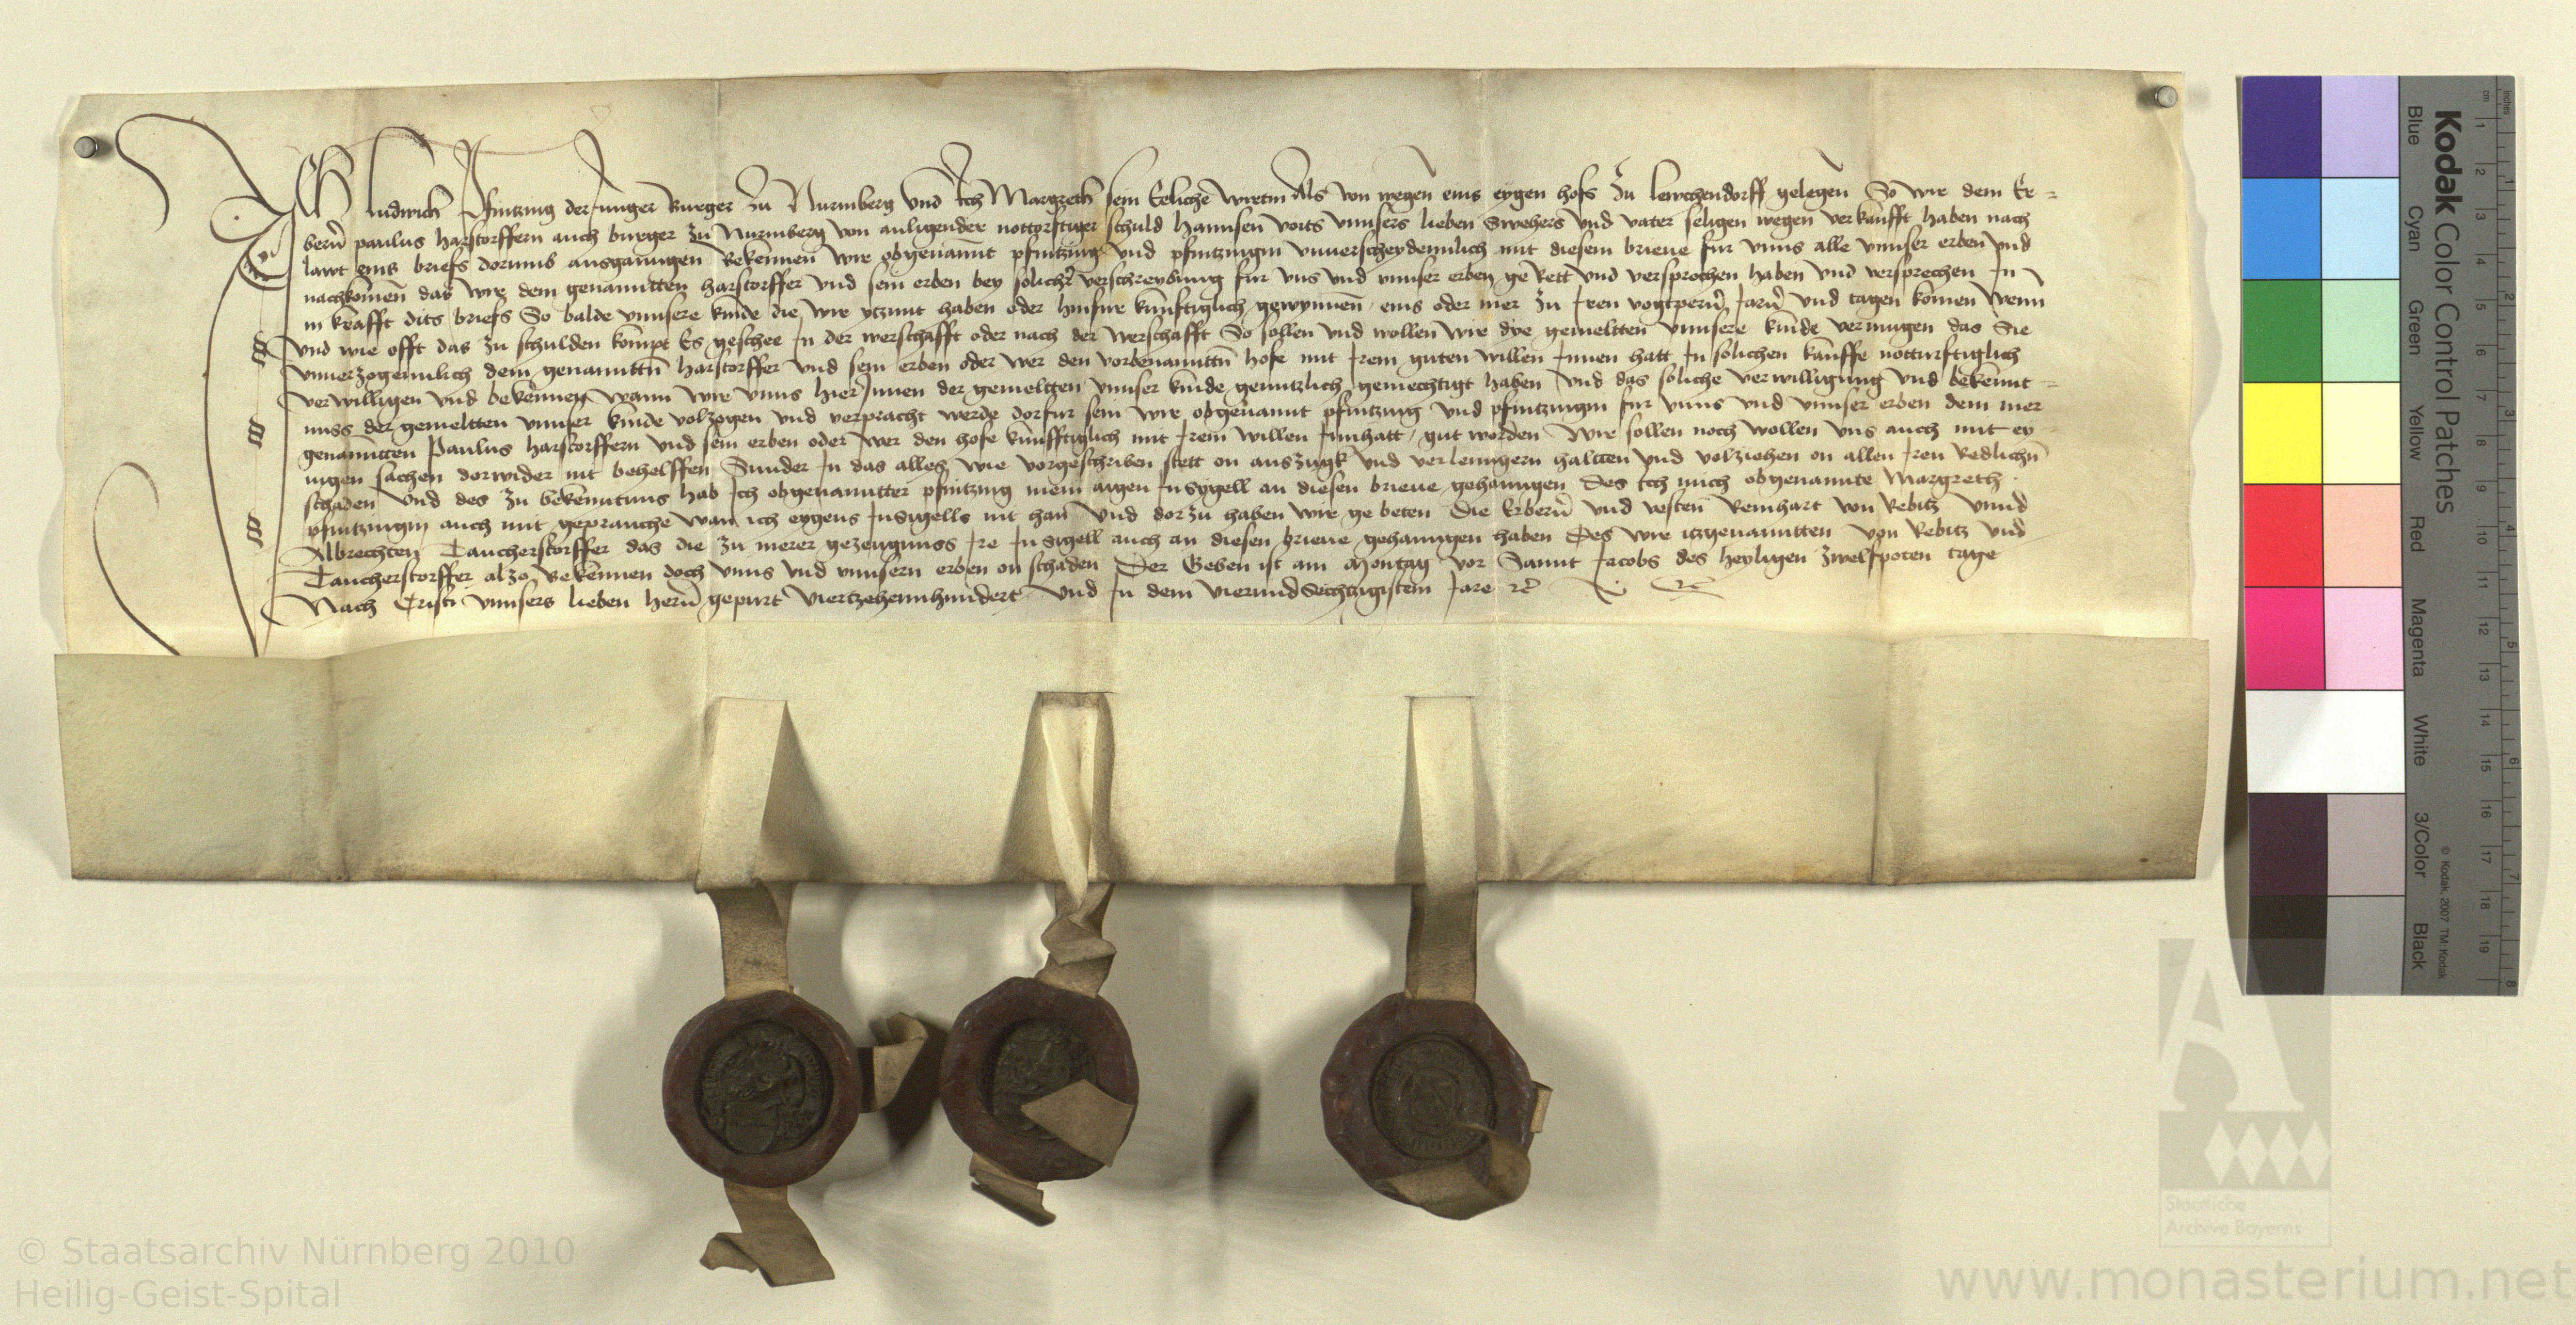 Ich ludwich Pfintzing der Junger Burger zu Nurmberg vnd Ich Margreth sein Eeliche wirtin Als von wegen eins eygen hofs zu lewchendorff gelegen So wir dem Er=
bern paulus harstorffern auch burger zu Nurmberg von anligender nottorftiger schuld hannsen vorts vnnsers lieben Swehers vnd vater seligen wegen verkaufft haben nach
lawt eins briefs dorumb ausgangen Bekennen wir obgenannt pfintzing vnd pfintzingin vnuerscheydennlich mit diesem brieue fur vnns alle vnnser erben vnd
nachkomen das wir dem genannten harstorffer vnd sein erben bey solicher verschreybung fur vns vnd vnnser erben gerett vnd versprochen haben vnd versprechen In
in krafft dits briefs So balde vnnsere kinde die wir ytzunt haben oder hinfur kunftiglich gewynnen eins oder mer zu Iren vogtpern Jarn vnd tagen komen Wenn
vnd wie offt das zu schulden kompt Es geschee In der werschafft oder nach der werschafft So sollen vnd wollen wir dye gemeltten vnnsere kinde vermugen das Sie
vnuerzogennlich dem genanntten harstorffer vnd sein erben oder wer den vorbenanntten hofe mit Irem guten willen Innen hatt In solichen kauffe notturftiglich
verwilligen vnd bekennen wann wir vnns hierInnen der gemeltten vnnser kinde genntzlich gemechtigt haben vnd das soliche verwilligung vnd bekennt=
nuss der gemeltten vnnser kinde volzogen vnd verpracht werde dorfur sein wir obgenannt pfintzing vnd pfintzingin fur vnns vnd vnnser erben dem mer
genannten Paulus harstorffern vnd sein erben oder wer den hofe kunfftiglich mit Irem willen Innhatt gut worden Wir sollen noch wollen vns auch mit ey
nigen sachen dorwider nit behelffen Sunder In das alles wie vorgeschriben stett on auszugk vnd verlenngern haltten vnd volziehen on allen Iren Redlichn
schaden Vnd des zu bekenntnus hab Ich obgenannter pfintzing mein aigen Insygell an diesen brieue gehanngen Des Ich mich obgenante Margreth
pfintzingin auch mit geprauche wan ich eygens Insigells nit han Vnd dorzu haben wir gebeten Die Erbern vnd vesten Reinhart von Rebitz vnnd
Albrechten Taucherstorffer das die zu merer gezeugnuss Ire Insigell auch an diesen brieue gehanngen haben Des wir itzgenanntten von Rebitz vnd
Taucherstorffer also Bekennen doch vnns vnd vnnsern erben on schaden Der Geben ist am Montag vor Sannt Jacobs des heyligen zwelfpoten tage
Nach Cristi vnnsers lieben hern gepurt Viertzehennhundert Vnd In dem VierundSechtzigistem Jare rc
Kodak Color Control Patches
Blue Cyan Green Yellow Red Magenta White 3/Color Black
© Kodak, 2007 TM: Kodak
cm 1 2 3 4 5 6 7 8 9 10 11 12 13 14 15 16 17 18 19
inches 1 2 3 4 5 6 7 8
Staatliche
Archive Bayerns
© Staatsarchiv Nürnberg 2010
Heilig-Geist-Spital
www.monasterium.net